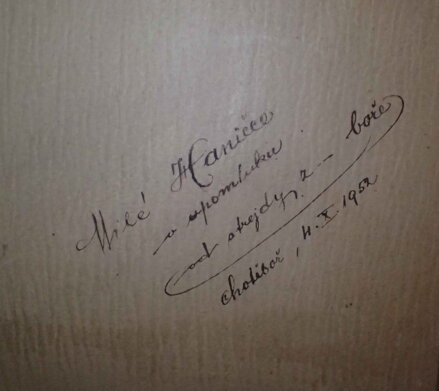 Milé Haničce
o vpomínku
od strejdy z — boře
Chotěboř, 4. X 1952